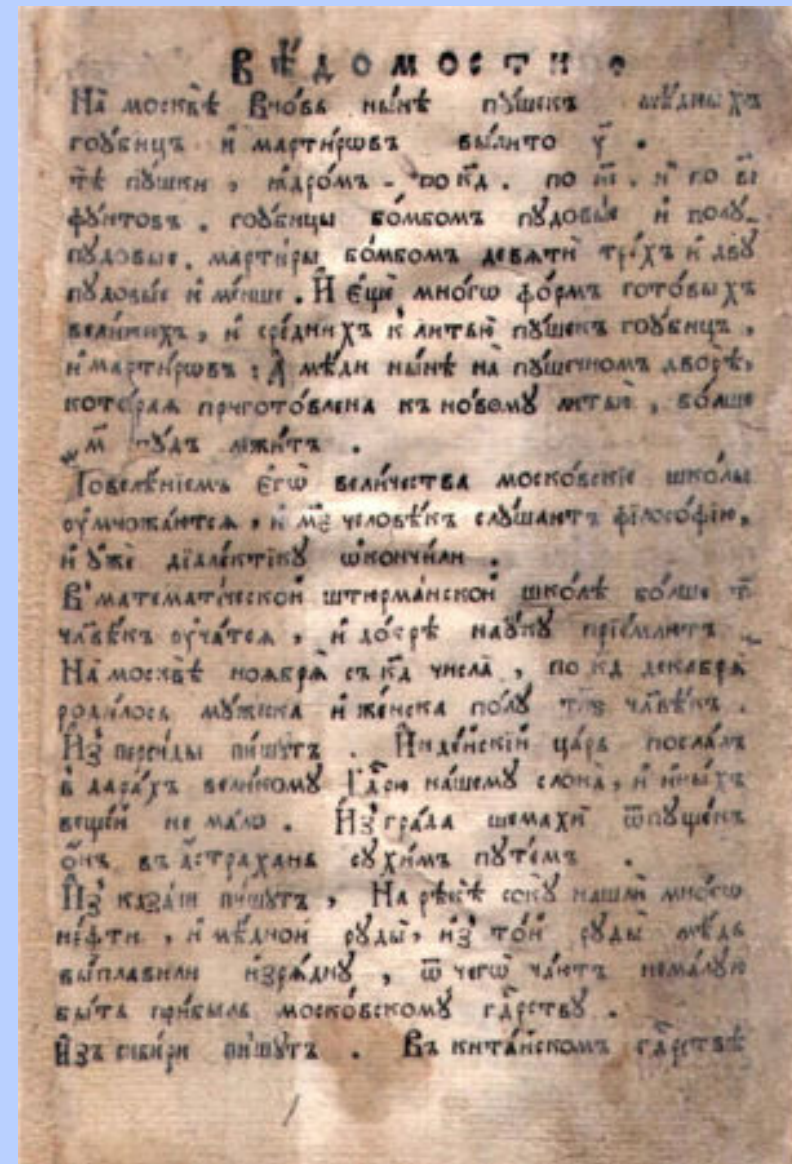 ВѢ́ДОМОСТИ.
На̀ москвѣ̀ вновь ны́нѣ пꙋ́шекъ мѣ́дныхъ
гоꙋбицъ и҆ марти́ровъ вы́лито у҃.
тѣ̀ пꙋ́шки, ꙗ҆дро́мъ - по к҃д. по и҃і. и҆ по в҃і
фꙋ́нтовъ. гоꙋбицы бо́мбомъ пꙋдовы́е и҆ полꙋ-
пꙋдовые. марти́ры бо́мбомъ девятѝ тре́хъ и҆ двꙋ̀
пꙋдовы́е и҆ ме́нше. И҆ є҆щѐ мно́гѡ фо́рмъ гото́выхъ
вели́кихъ, и҆ сре́днихъ к̾ литью̀ пꙋ́шекъ гоꙋбицъ,
и҆ марти́рѡвъ: А҆ мѣ́ди ны́нѣ на̀ пꙋ́шечномъ дворѣ̀,
кото́рая пригото́влена къ но́вомꙋ литью̀, бо́лше
м҃ пꙋ́дъ лежи́тъ.
Повелѣ́нїемъ є҆гѡ̀ вели́чества моско́вскїе шко́лы
ᲂу҆множа́ются, и҆ м҃є человѣ́къ слꙋ́шаютъ фїлосо́фїю,
и҆ ᲂу҆жѐ дїале́ктїкꙋ ѡ҆кончи́ли.
В̾ математі́ческой штюрма́нской шко́лѣ бо́лше т҃
чл҃вѣ́къ ᲂу҆ча́тся, и҆ до́брѣ наꙋ́кꙋ прїе́млютъ.
На̀ москвѣ̀ ноября̀ съ к҃д числа̀, по к҃д декабря̀
роди́лось мꙋ́жеска и҆ же́нска по́лꙋ т҃пѕ чл҃вѣ́къ.
И҆з̾ перси́ды пи́шꙋтъ. И҆нде́йскїй ца́рь посла́лъ
в̾ дара́хъ вели́комꙋ Гдⷭ҇рю на́шемꙋ слона̀, и҆ и҆ны́хъ
веще́й не ма́ло. И҆з̾ гра́да шемахѝ ѿпꙋ́щенъ
ѻ҆́нъ въ а҆́страхань сꙋхи́мъ пꙋте́мъ.
И҆з̾ каза́ни пи́шꙋтъ, На̀ рѣкѣ̀ сокꙋ̀ нашлѝ мно́гѡ
не́фти, и҆ мѣ́дной рꙋды̀, и҆з̾ то́й рꙋды̀ мѣ́дь
вы́плавили и҆зря́днꙋ, ѿ чегѡ̀ ча́ютъ немалꙋю
бы́ть при́быль моско́вскомꙋ гдⷭ҇рствꙋ.
И҆зъ сиби́ри пи́шꙋтъ. Въ кита́йскомъ гдⷭ҇рствѣ